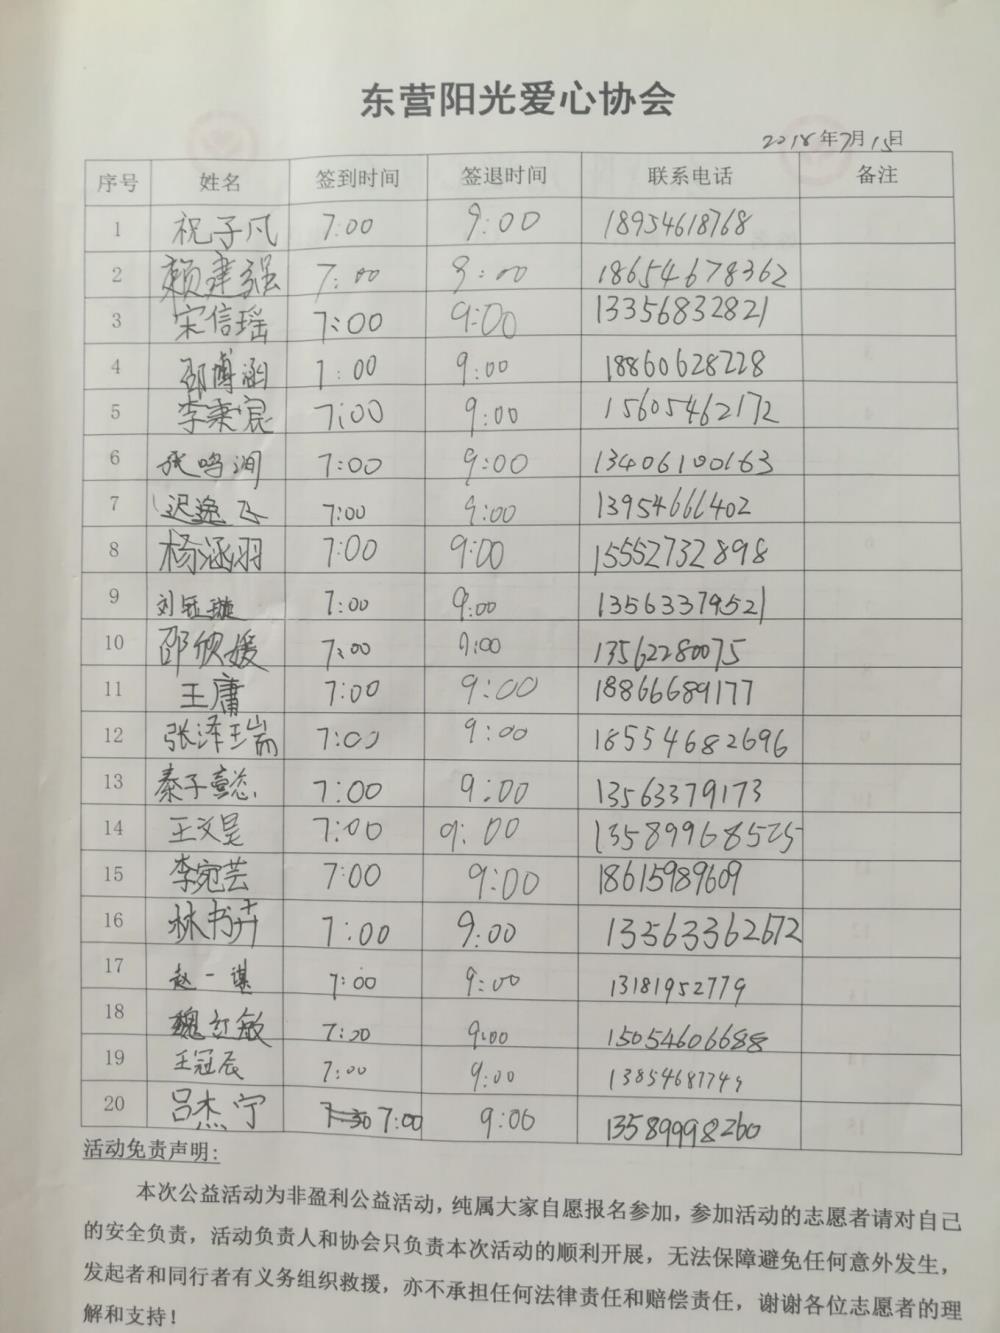 东营阳光爱心协会
2018年7月15日
序号 姓名 签到时间 签退时间 联系电话 备注
1 祝子凡 7:00 9:00 18954618768
2 颜建强 7:00 9:00 18654678362
3 宋信瑶 7:00 9:00 13356832821
4 邵博涵 7:00 9:00 18860628228
5 李秉宸 7:00 9:00 15605462172
6 张鸣润 7:00 9:00 13406100163
7 迟逸飞 7:00 9:00 13954666402
8 杨涵羽 7:00 9:00 15552732898
9 刘钰璇 7:00 9:00 13563379521
10 邵欣媛 7:00 9:00 13562280075
11 王庸 7:00 9:00 18866689177
12 张泽瑞 7:00 9:00 18554682696
13 秦子懿 7:00 9:00 13563379173
14 王文昊 7:00 9:00 13589968525
15 李宛芸 7:00 9:00 18615989609
16 林书卉 7:00 9:00 13563362672
17 赵一谋 7:00 9:00 13181952779
18 魏红敏 7:20 9:00 15054606688
19 王冠辰 7:00 9:00 13854687749
20 吕杰宁 7:00 9:00 13589998260
活动免责声明:
本次公益活动为非盈利公益活动，纯属大家自愿报名参加，参加活动的志愿者请对自己
的安全负责，活动负责人和协会只负责本次活动的顺利开展，无法保障避免任何意外发生，
发起者和同行者有义务组织救援，亦不承担任何法律责任和赔偿责任，谢谢各位志愿者的理
解和支持！